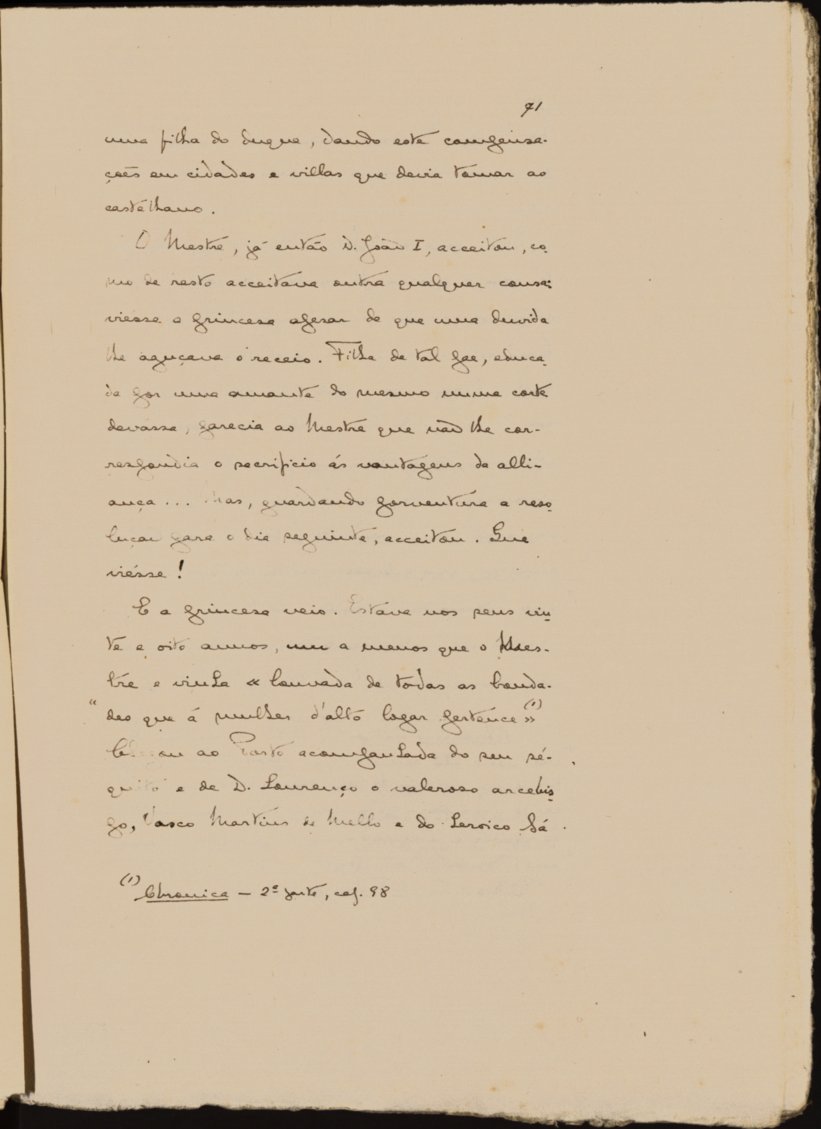 71
uma filha do duque, dando este compensa-
ções em cidades e villas que devia tomar ao
castelhano.
O Mestre, já então D. João I, acceitou, co-
mo de resto acceitava outra qualquer cousa:
viésse a princesa apesar de que uma duvida
lhe aguçava o receio. Filha de tal pae, educa-
da por uma amante do mesmo numa corte
devassa, parecia ao Mestre que não lhe cor-
respondia o sacrificio ás vantagens da alli-
ança... Mas, guardando porventura a reso-
lução para o dia seguinte, acceitou. Que
viésse!
E a princesa veio. Estava nos seus vin-
te e oito annos, um a menos que o Mes-
tre e vinha « louvada de todas as bonda-
" des que á mulher d'alto logar pertence » (1)
Chegou ao Porto acompanhada do seu sé-
quito e de D. Lourenço o valeroso arcebis-
po, Vasco Martins de Mello e do heroico Sá.
(1) Chronica — 2ª parte, cap. 98